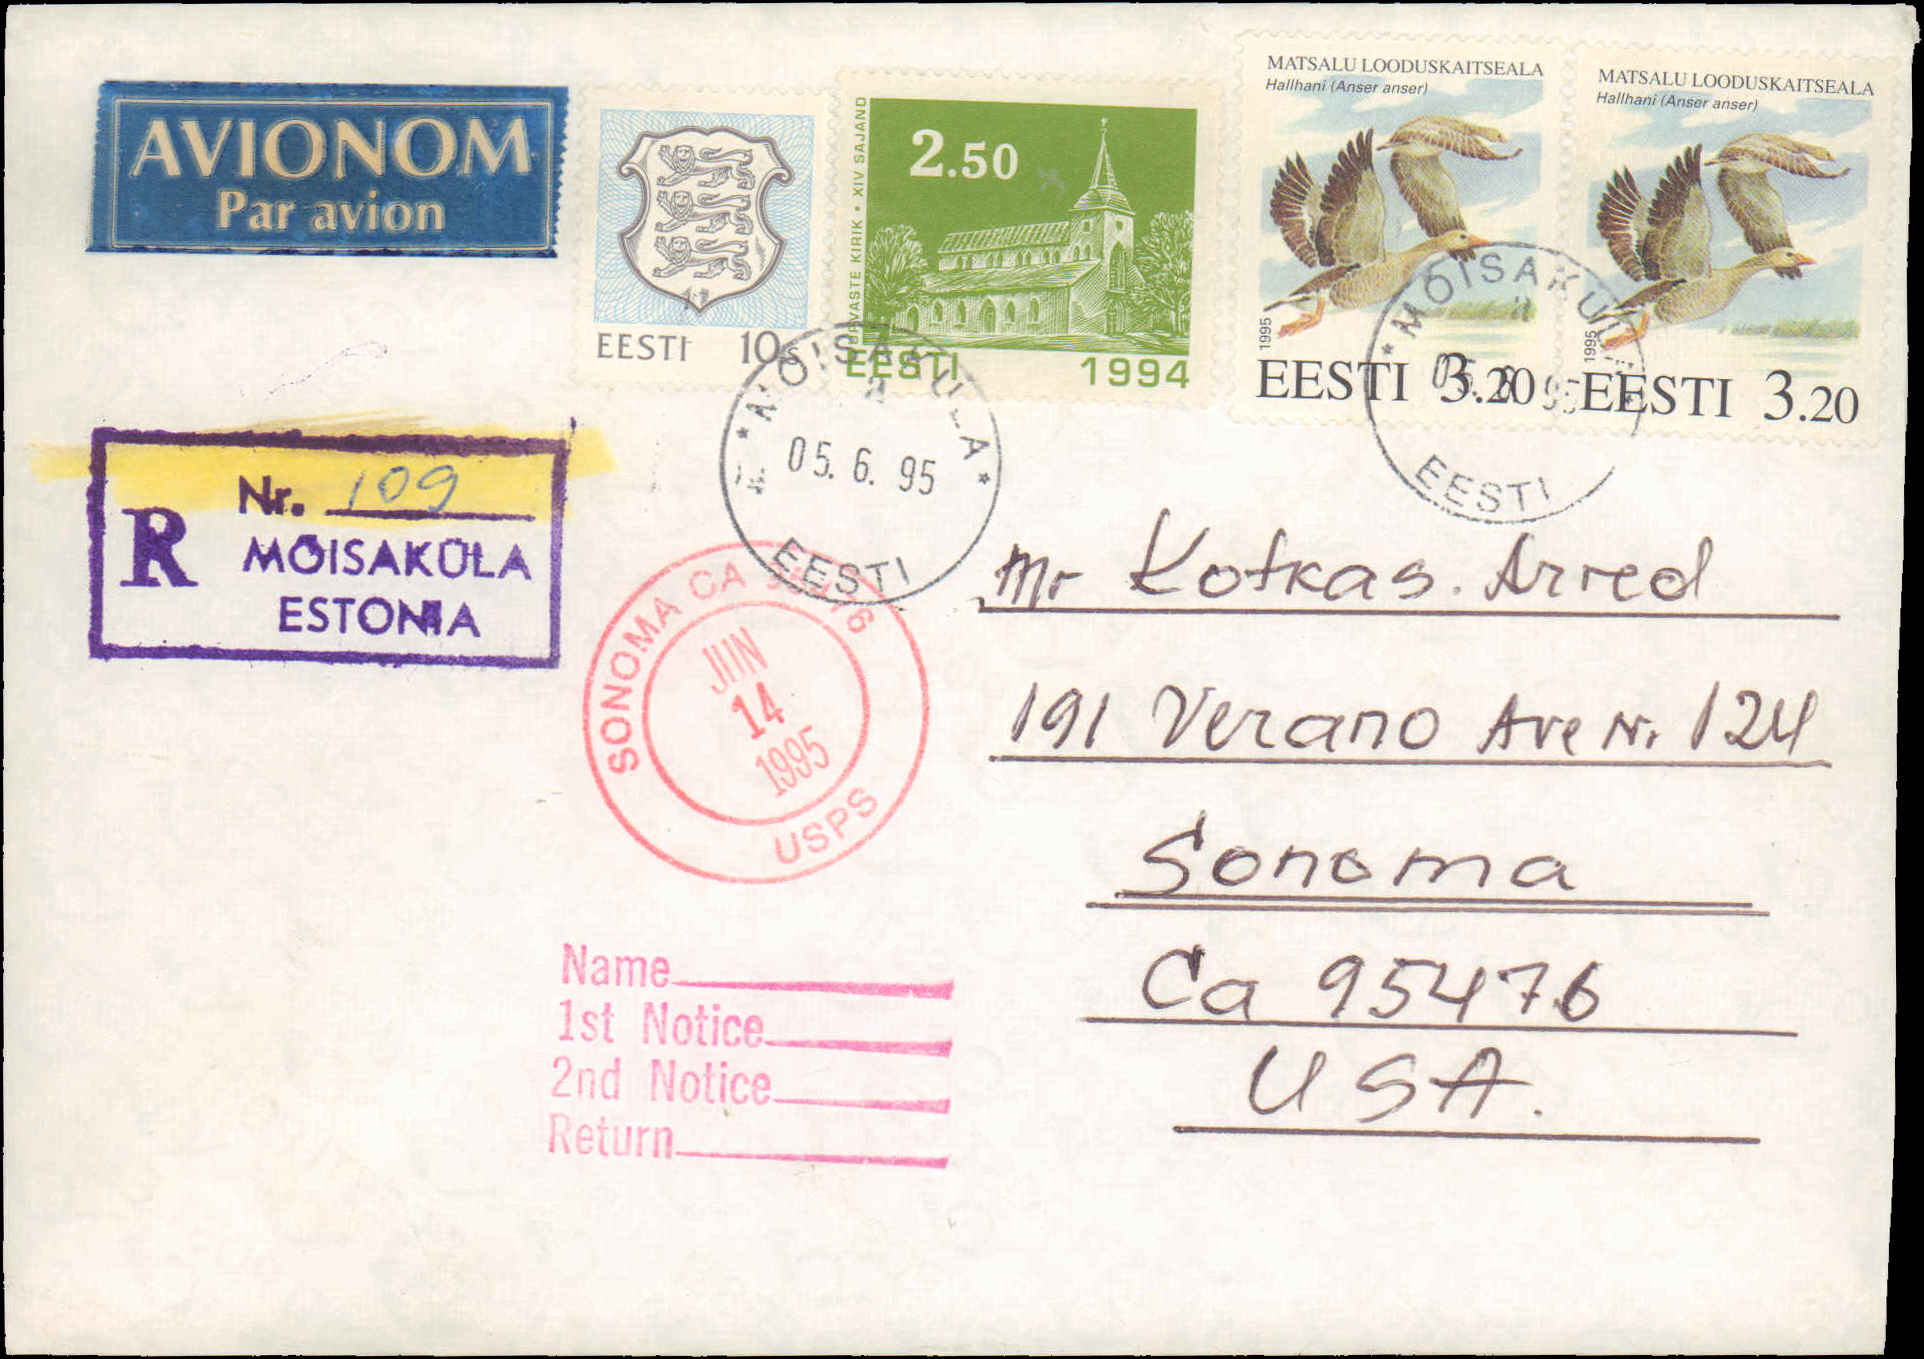 AVIONOM
Par avion
EESTI 10s
2.50
URVASTE KIRIK • XIV SAJAND
EESTI 1994
MATSALU LOODUSKAITSEALA
Hallhani (Anser anser)
1995
EESTI 3.20
MATSALU LOODUSKAITSEALA
Hallhani (Anser anser)
1995
EESTI 3.20
MÕISAKÜLA
05.6.95
EESTI
MÕISAKÜLA
05.6.95
EESTI
R
Nr. 109
MÕISAKÜLA
ESTONIA
SONOMA CA 95476
JUN
14
1995
USPS
Mr Kotkas. Arred
191 Verano Ave Nr. 124
Sonoma
Ca 95476
USA.
Name
1st Notice
2nd Notice
Return